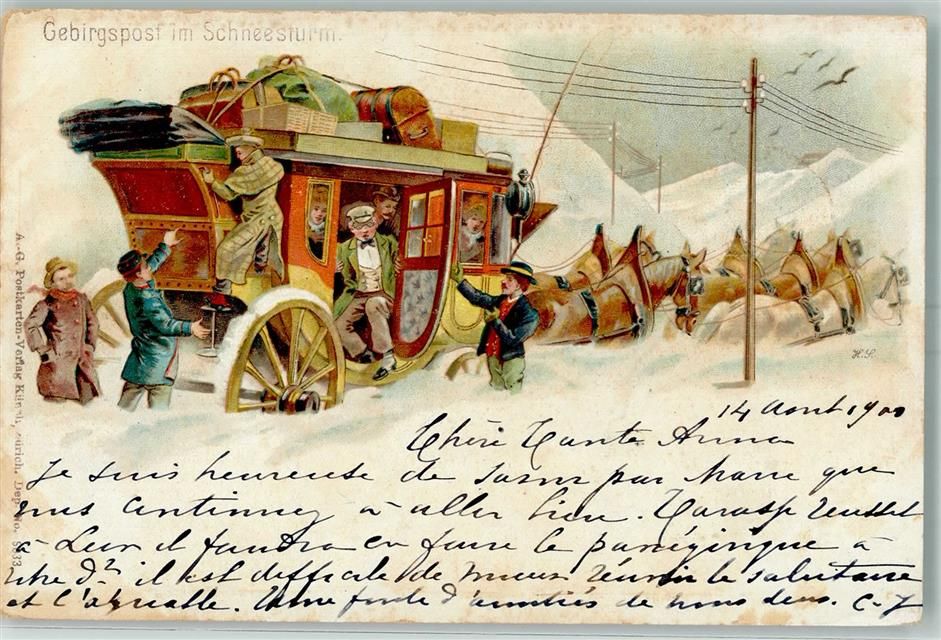 Gebirgspost im Schneesturm.
A.-G. Postkarten-Verlag Künzli, Zürich. Dep. No. 8833
H.S.
14 Aout 1900
Chère Tante Anna
Je suis heureuse de savoir par Marie que
vous continuez à aller bien. Tarasp réussit
à Leur il faudra en faire le panégirique à
votre Dr il est difficile de mieux réunir le salutaire
et l'agréable. Une foule d'amitiés de nous deux. C-J